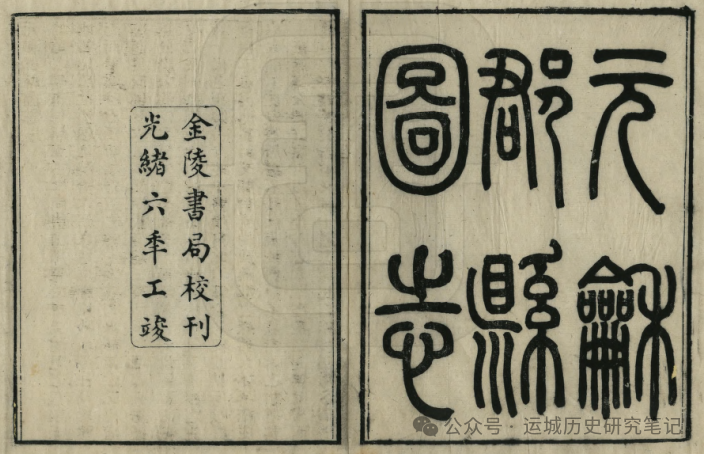 元龢
郡縣
圖志
金陵書局校刊
光緒六秊工竣
公众号 · 运城历史研究笔记